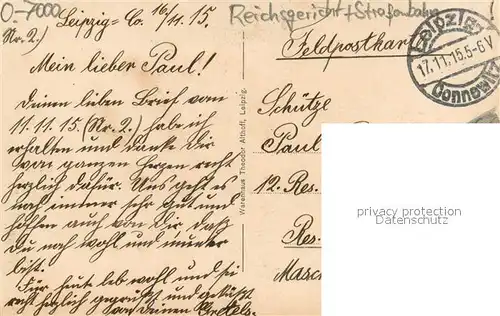 O-7000
Reichsgericht + Straßenbahn
Leipzig-Co. 16/11.15.
(Nr. 2.)
Mein lieber Paul!
Deinen lieben Brief vom
11.11.15. (Nr. 2.) habe ich
erhalten und danke Dir
von ganzen Herzen recht
herzlich dafür. Uns geht es
noch immer sehr gut und
hoffen auch von dir daß
Du noch wohl und munter
bist.
Für heute leb wohl und sei
recht herzlich gegrüßt und geküßt
von Deinen
Warenhaus Theodor Althoff, Leipzig.
Feldpostkar
Leipzig
17.11.15.5-6V
Connewitz
Schütze
Paul
12. Res.
Res.
Masch
privacy protection
Datenschutz